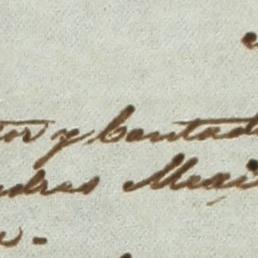 tor y Contad
ndres Mexi